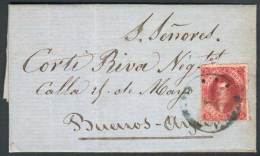 S. Señores
Corti Riva
Calla 25 de Mayo
Buenos-Ayres